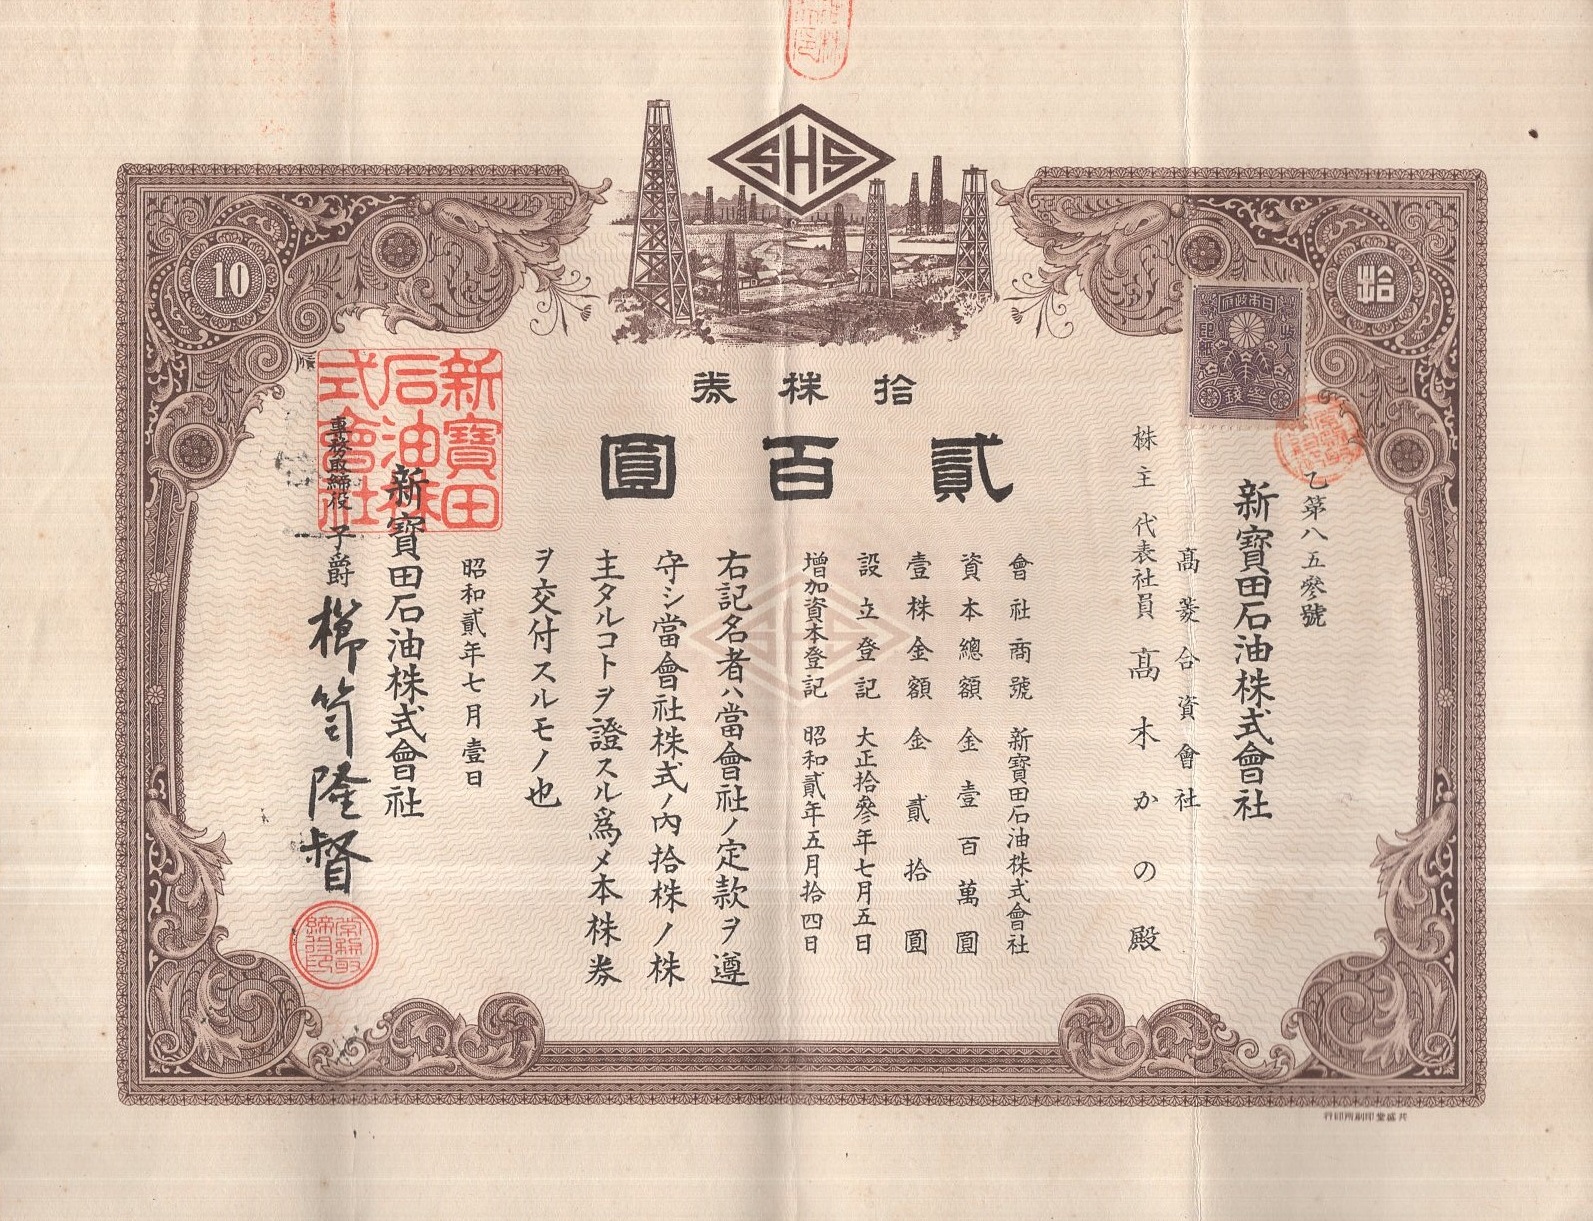 SHS
10
拾
日本政府
収入
印紙
参銭
拾株券
貳百圓
乙第八五參號
新寶田石油株式會社
高菱合資會社
株主 代表社員 髙木かの殿
會社商號 新寶田石油株式會社
資本總額 金壹百萬圓
壹株金額 金貳拾圓
設立登記 大正拾參年七月五日
增加資本登記 昭和貳年五月拾四日
右記名者ハ當會社ノ定款ヲ遵
守シ當會社株式ノ內拾株ノ株
主タルコトヲ證スル爲メ本株券
ヲ交付スルモノ也
昭和貳年七月壹日
新寶田石油株式會社
專務取締役 子爵 櫛笥隆督
新寶田
石油株
式會社
共盛堂印刷所印行